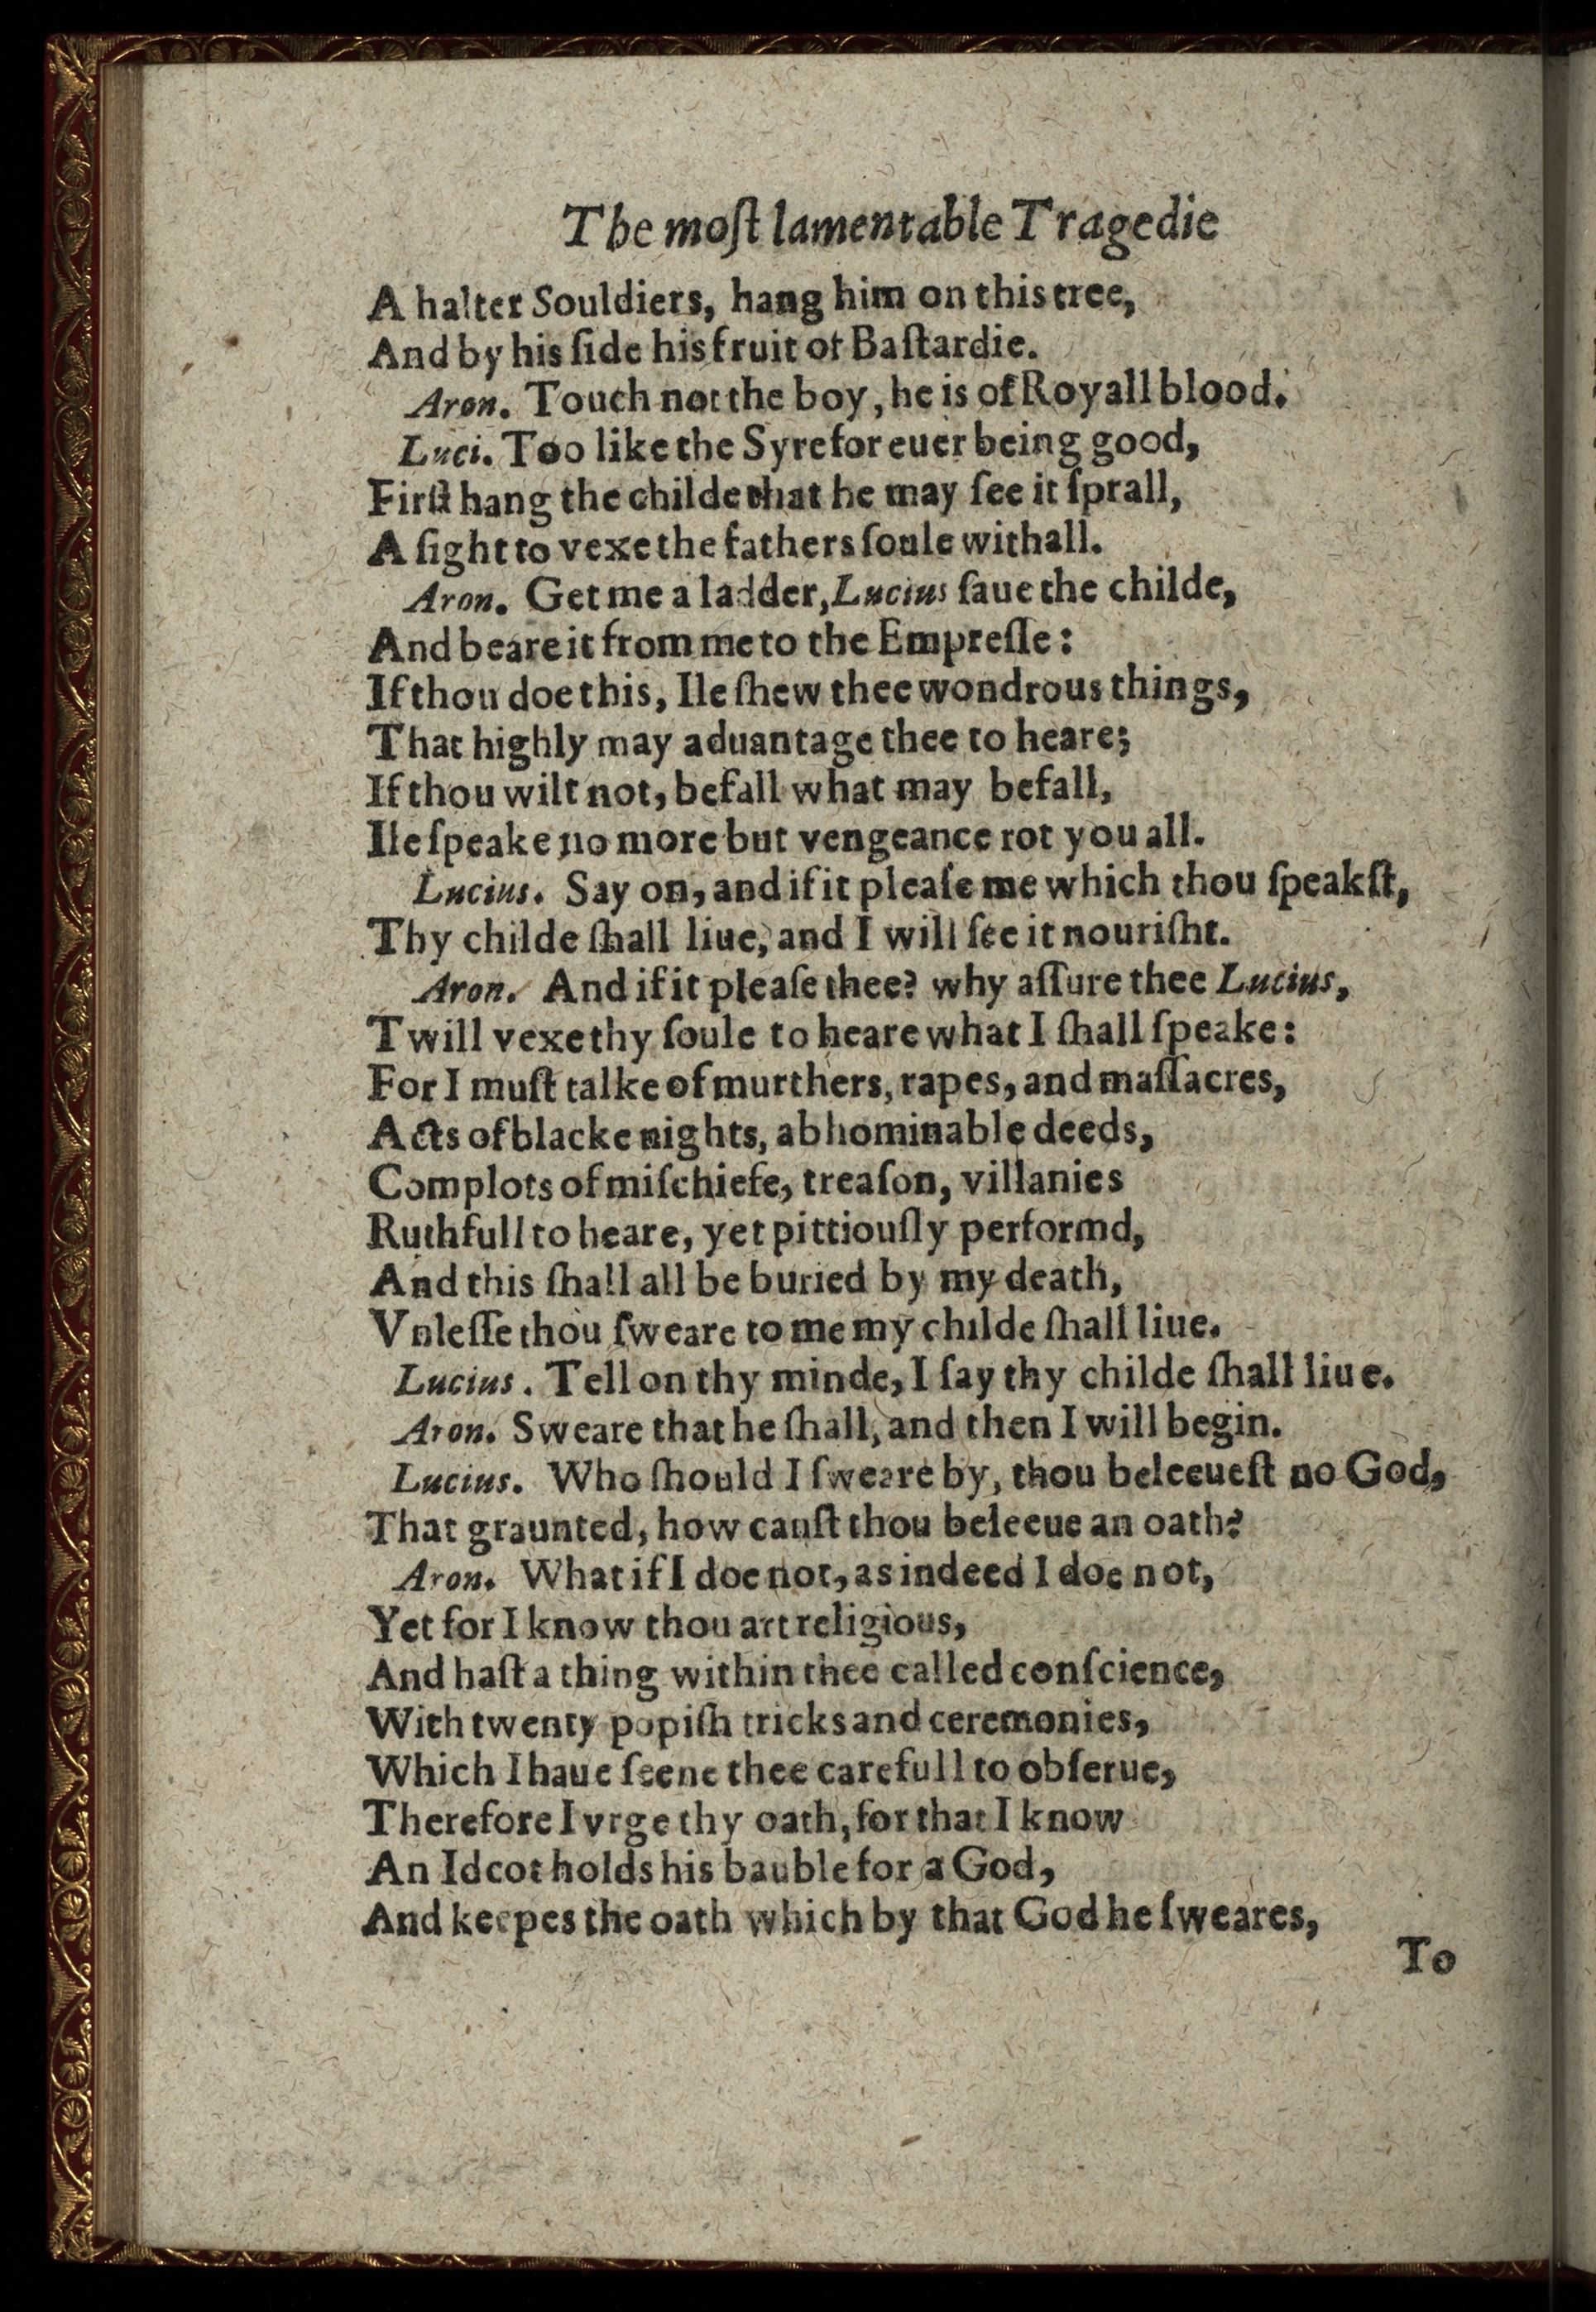 The moſt lamentable Tragedie
A halter Souldiers, hang him on this tree,
And by his ſide his fruit of Baſtardie.
Aron. Touch not the boy, he is of Royall blood.
Luci. Too like the Syre for euer being good,
Firſt hang the childe that he may ſee it ſprall,
A ſight to vexe the fathers ſoule withall.
Aron. Get me a ladder, Lucius ſaue the childe,
And beare it from me to the Empreſſe:
If thou doe this, Ile ſhew thee wondrous things,
That highly may aduantage thee to heare;
If thou wilt not, befall what may befall,
Ile ſpeake no more but vengeance rot you all.
Lucius. Say on, and if it pleaſe me which thou ſpeakſt,
Thy childe ſhall liue, and I will ſee it nouriſht.
Aron. And if it pleaſe thee? why aſſure thee Lucius,
Twill vexe thy ſoule to heare what I ſhall ſpeake:
For I muſt talke of murthers, rapes, and maſſacres,
Acts of blacke nights, abhominable deeds,
Complots of miſchiefe, treaſon, villanies
Ruthfull to heare, yet pittiouſly performd,
And this ſhall all be buried by my death,
Vnleſſe thou ſweare to me my childe ſhall liue.
Lucius. Tell on thy minde, I ſay thy childe ſhall liue.
Aron. Sweare that he ſhall, and then I will begin.
Lucius. Who ſhould I ſweare by, thou beleeueſt no God,
That graunted, how canſt thou beleeue an oath?
Aron. What if I doe not, as indeed I doe not,
Yet for I know thou art religious,
And haſt a thing within thee called conſcience,
With twenty popiſh tricks and ceremonies,
Which I haue ſeene thee carefull to obſerue,
Therefore I vrge thy oath, for that I know
An Ideot holds his bauble for a God,
And keepes the oath which by that God he ſweares,
To